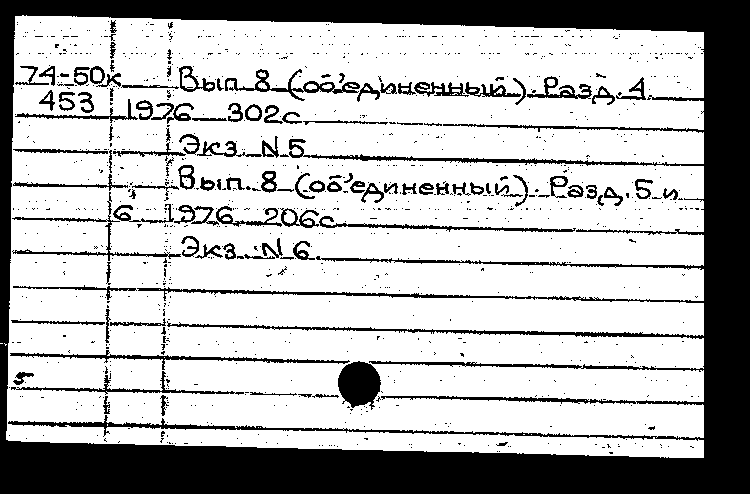 74-50к Вып. 8 (об'единенный). Разд. 4.
453 1976 302с.
Экз. N 5
Вып. 8 (об'единенный). Разд. 5 и
6. 1976. 206с.
Экз. N 6.
5